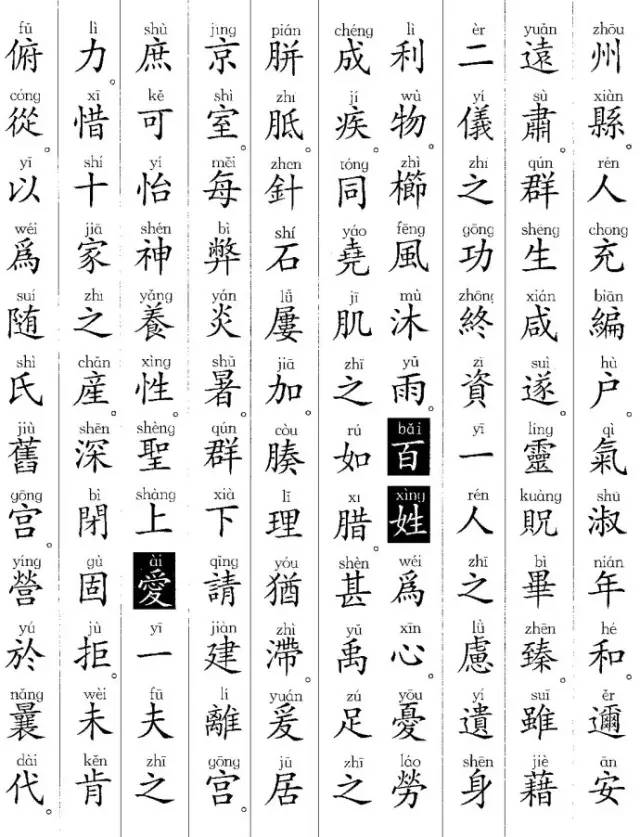 zhōu xiàn rén chong biān hù qì shū nián hé ěr ān
州縣。人充編户。氣淑年和。邇安
yuǎn sù qún sheng xián suì ling kuàng bì zhēn suī jiè
遠肅。群生咸遂。靈貺畢臻。雖藉
èr yí zhi gōng zhōng zī yī rén zhī lǜ yí shēn
二儀之功。終資一人之慮。遺身
lì wù zhì fēng mù yǔ bǎi xìng wéi xīn yōu láo
利物。櫛風沐雨。百姓爲心。憂勞
chéng jí tóng yáo jī zhī rú xi shèn yǔ zú zhī
成疾。同堯肌之如腊。甚禹足之
pián zhī zhen shí lǚ jiā còu lǐ yóu zhì yuán jū
胼胝。針石屢加。腠理猶滯。爰居
jing shì měi bì yán shǔ qún xià qǐng jiàn lí gōng
京室。每弊炎暑。群下請建離宮。
shù kě yí shén yǎng xìng shèng shàng ài yī fū zhī
庶可怡神養性。聖上愛一夫之
lì xī shí jiā zhī chǎn shēn bì gù jù wèi kěn
力。惜十家之産。深閉固拒。未肯
fǔ cóng yǐ wéi suí shì jiù gōng yíng yú nǎng dài
俯從。以爲随氏舊宮。營於曩代。